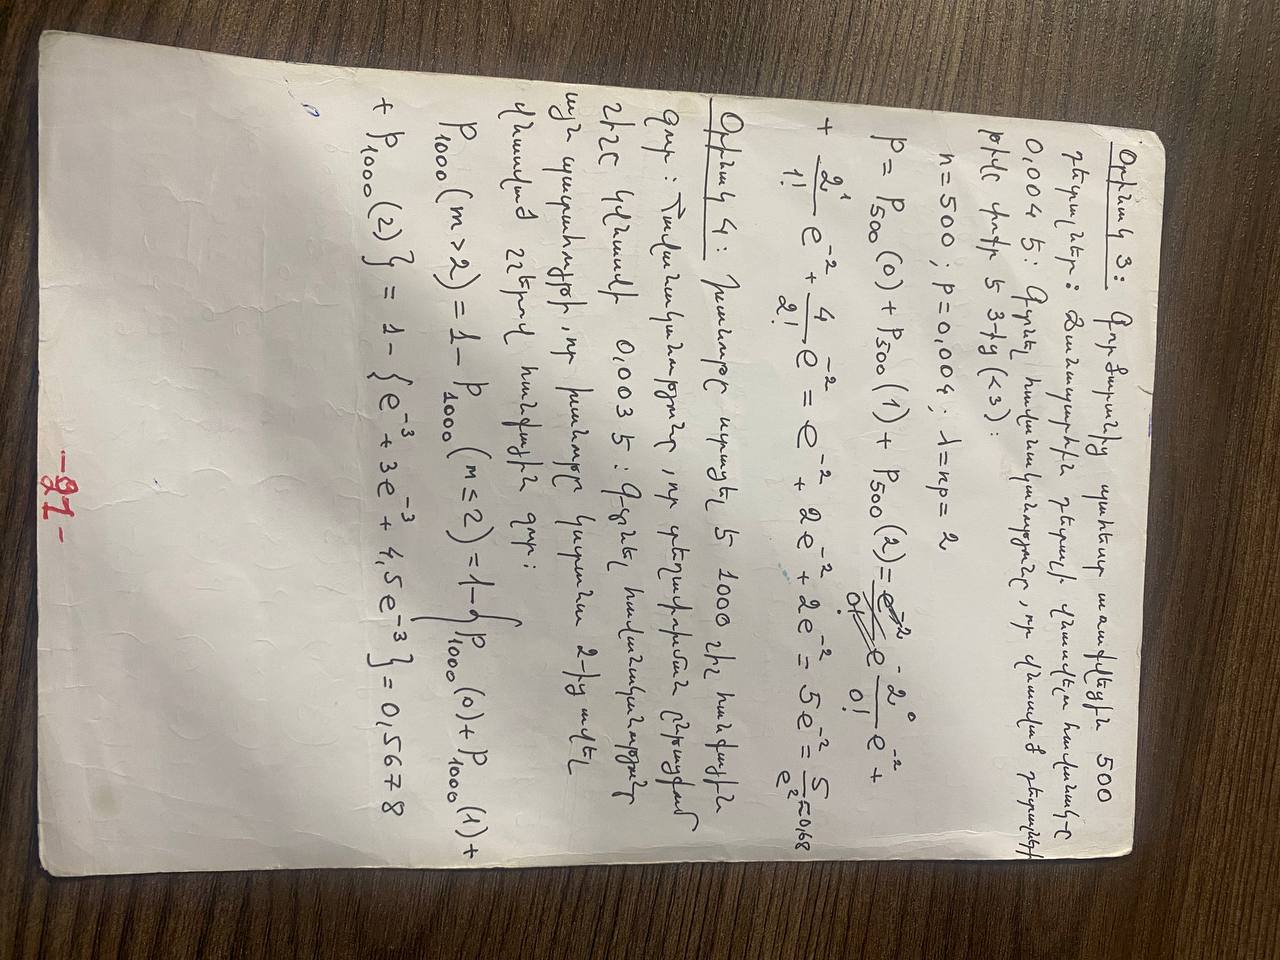 Օրինակ 3: Գործարանից պահեստ առաքվեցին 500
դետալներ: Ճանապարհին դետալի վնասվելու հավանակ-ը
0,004 է: Գտնել հավանականությունը, որ վնասված դետալների
թիվը փոքր է 3-ից (<3):
n=500; p=0,004; λ=np=2
P= P₅₀₀(0) + P₅₀₀(1) + P₅₀₀(2) = 2⁰/0! e⁻² +
+ 2¹/1! e⁻² + 4/2! e⁻² = e⁻² + 2e⁻² + 2e⁻² = 5e⁻² = 5/e² ≈ 0,68
Օրինակ 4: Խանութը ստացել է 1000 շիշ հանքային
ջուր: Հավանականությունը, որ տեղափոխման ընթացքում
շիշը կվնասվի 0,003 է: Գտնել հավանականությունը
այն պատահույթի, որ խանութը կստանա 2-ից ավել
վնասված շշերով հանքային ջուր:
P₁₀₀₀(m>2) = 1- P₁₀₀₀(m≤2) = 1-{P₁₀₀₀(0) + P₁₀₀₀(1) +
+ P₁₀₀₀(2)} = 1-{e⁻³ + 3e⁻³ + 4,5e⁻³} = 0,5678
-21-